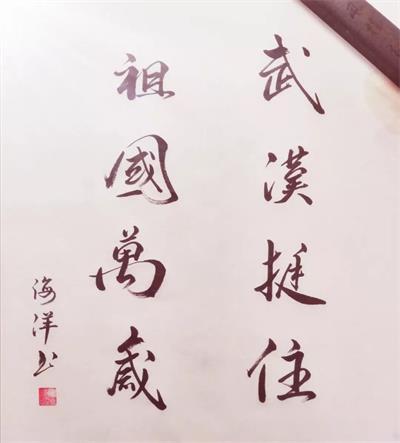 武漢挺住
祖國萬歲
海洋书